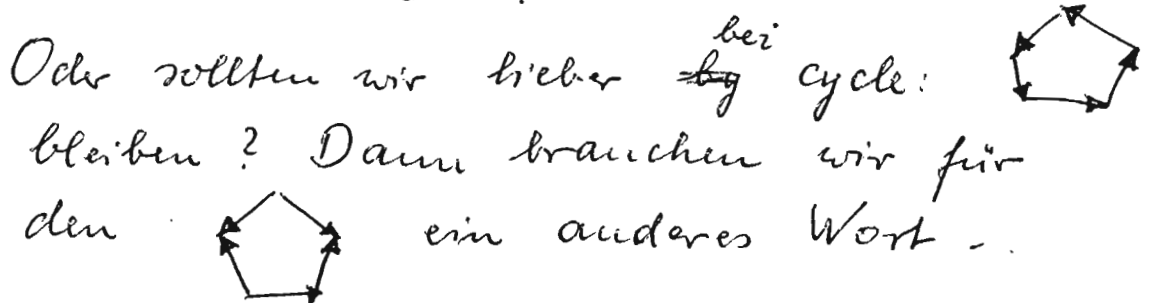 Oder sollten wir lieber bei cycle:
bleiben? Dann brauchen wir für
den ein anderes Wort.